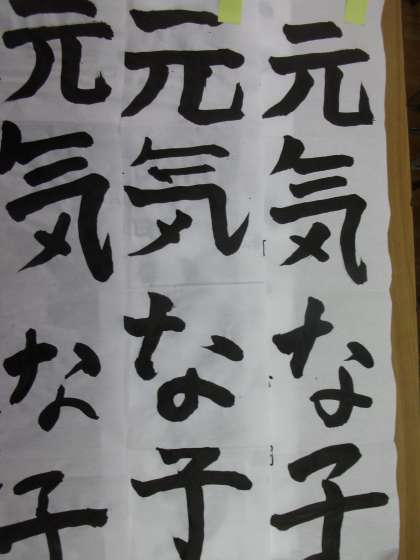 元気な子
元気な子
元気な子